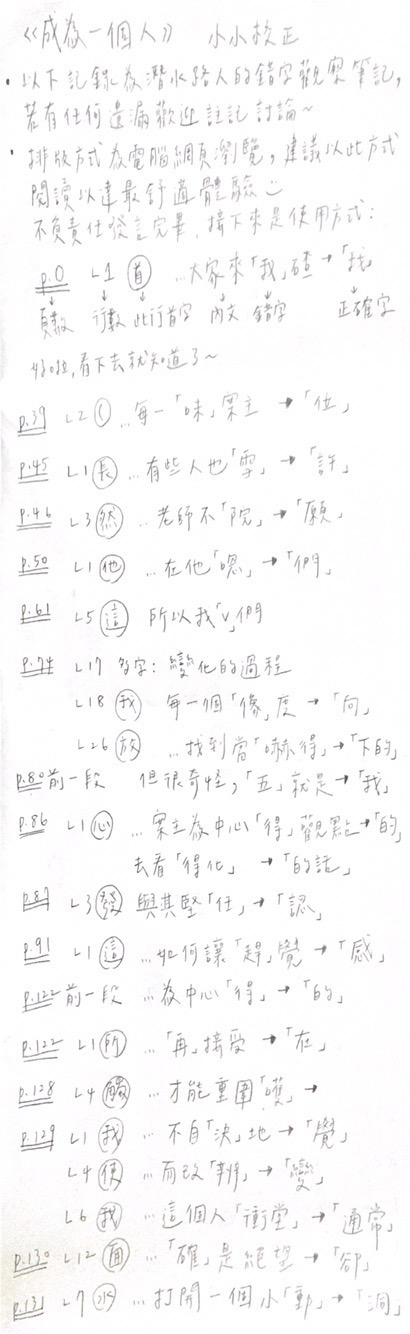 《成為一個人》 小小校正
・以下記錄為潛水路人的錯字觀察筆記，
若有任何遺漏歡迎註記討論~
・排版方式為電腦網頁瀏覽，建議以此方式
閱讀以達最舒適體驗
不負責任發言完畢，接下來是使用方式：
p.0 L1 首 …大家來「我」碴→「找」
頁數 行數 此行首字 內文 錯字 正確字
好啦，看下去就知道了~
p.39 L2 ( …每一「味」案主→「位」
p.45 L1 長 …有些人也「雪」→「許」
p.46 L3 然 …老師不「院」→「願」
p.50 L1 他 …在他「嗯」→「們」
p.61 L5 這 所以我「v」們
p.74 L17 多字：變化的過程
L18 我 每一個「像」度→「向」
L26 放 …找到當「嚇得」→「下的」
p.80前一段 但很奇怪，「五」就是→「我」
p.86 L1 心 …案主為中心「得」觀點→「的」
去看「得化」→「的話」
p.87 L3 發 與其堅「任」→「認」
p.91 L1 這 …如何讓「趕」覺→「感」
p.122前一段 …為中心「得」→「的」
p.122 L1 所 …「再」接受→「在」
p.128 L4 觸 …才能重圍「嘆」→
p.129 L1 我 …不自「決」地→「覺」
L4 使 …而改「辨」→「變」
L6 我 …這個人「衝堂」→「通常」
p.130 L12 面 …「確」是絕望→「卻」
p.131 L7 水 …打開一個小「動」→「洞」